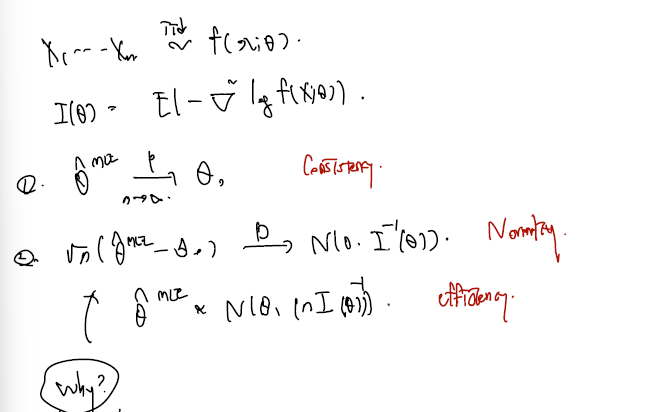 X₁ --- Xₙ iid ~ f(x;θ).
I(θ) = E[-∇² log f(X;θ)].
①. θ̂^MLE →^p_{n→∞} θ₀ Consistency.
②. √n(θ̂^MLE - θ₀) →^D N(0, I⁻¹(θ)). Normality.
↑ θ̂^MLE ≈ N(θ, (nI(θ))⁻¹). efficiency.
Why?